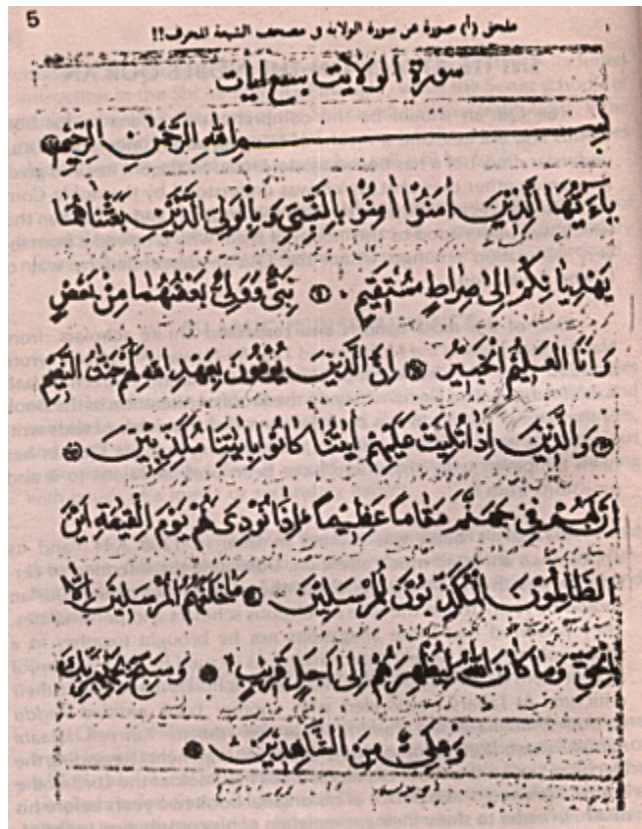 5
ملحق (أ) صورة عن سورة الولاية في مصحف الشيعة المحرف!!
سورة الولايت سبع ايات
بسم الله الرحمن الرحيم
يَا أَيُّهَا الَّذِينَ اٰمَنُوا اٰمِنُوا بِالنَّبِيِّ وَبِالْوَلِيِّ الَّذَيْنِ بَعَثْنَاهُمَا
يَهْدِيَانِكُمْ اِلىٰ صِرَاطٍ مُسْتَقِيمٍ نَبِيٌّ وَوَلِيٌّ بَعْضُهُمَا مِنْ بَعْضٍ
وَاَنَا الْعَلِيْمُ الْخَبِيْرُ اِنَّ الَّذِيْنَ يُوْفُوْنَ بِعَهْدِ اللّٰهِ لَهُمْ جَنّٰتُ النَّعِيْمِ
وَالَّذِيْنَ اِذَا تُلِيَتْ عَلَيْهِمْ اٰيٰتُنَا كَانُوْا بِاٰيٰتِنَا مُكَذِّبِيْنَ
اِنَّ لَهُمْ فِيْ جَهَنَّمَ مَقَامًا عَظِيْمًا اِذَا نُوْدِيَ لَهُمْ يَوْمَ الْقِيٰمَةِ اَيْنَ
الظَّالِمُوْنَ الْمُكَذِّبُوْنَ لِلْمُرْسَلِيْنَ مَا خَلَفَهُمُ الْمُرْسَلِيْنَ اِلَّا
بِالْحَقِّ وَمَا كَانَ اللّٰهُ لِيُظْهِرَهُمْ اِلىٰ اَجَلٍ قَرِيْبٍ وَسَبِّحْ بِحَمْدِ رَبِّكَ
وَعَلِيٌّ مِنَ الشَّاهِدِيْنَ